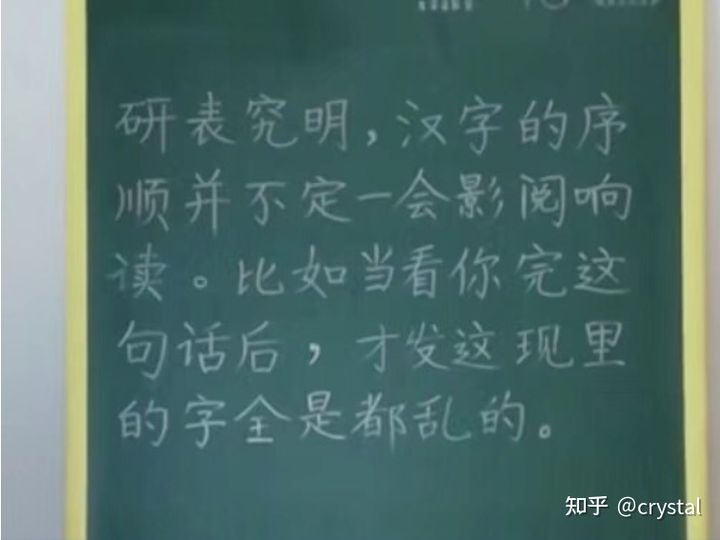 研表究明，汉字的序
顺并不定一会影阅响
读。比如当看你完这
句话后，才发这现里
的字全是都乱的。
知乎 @crystal